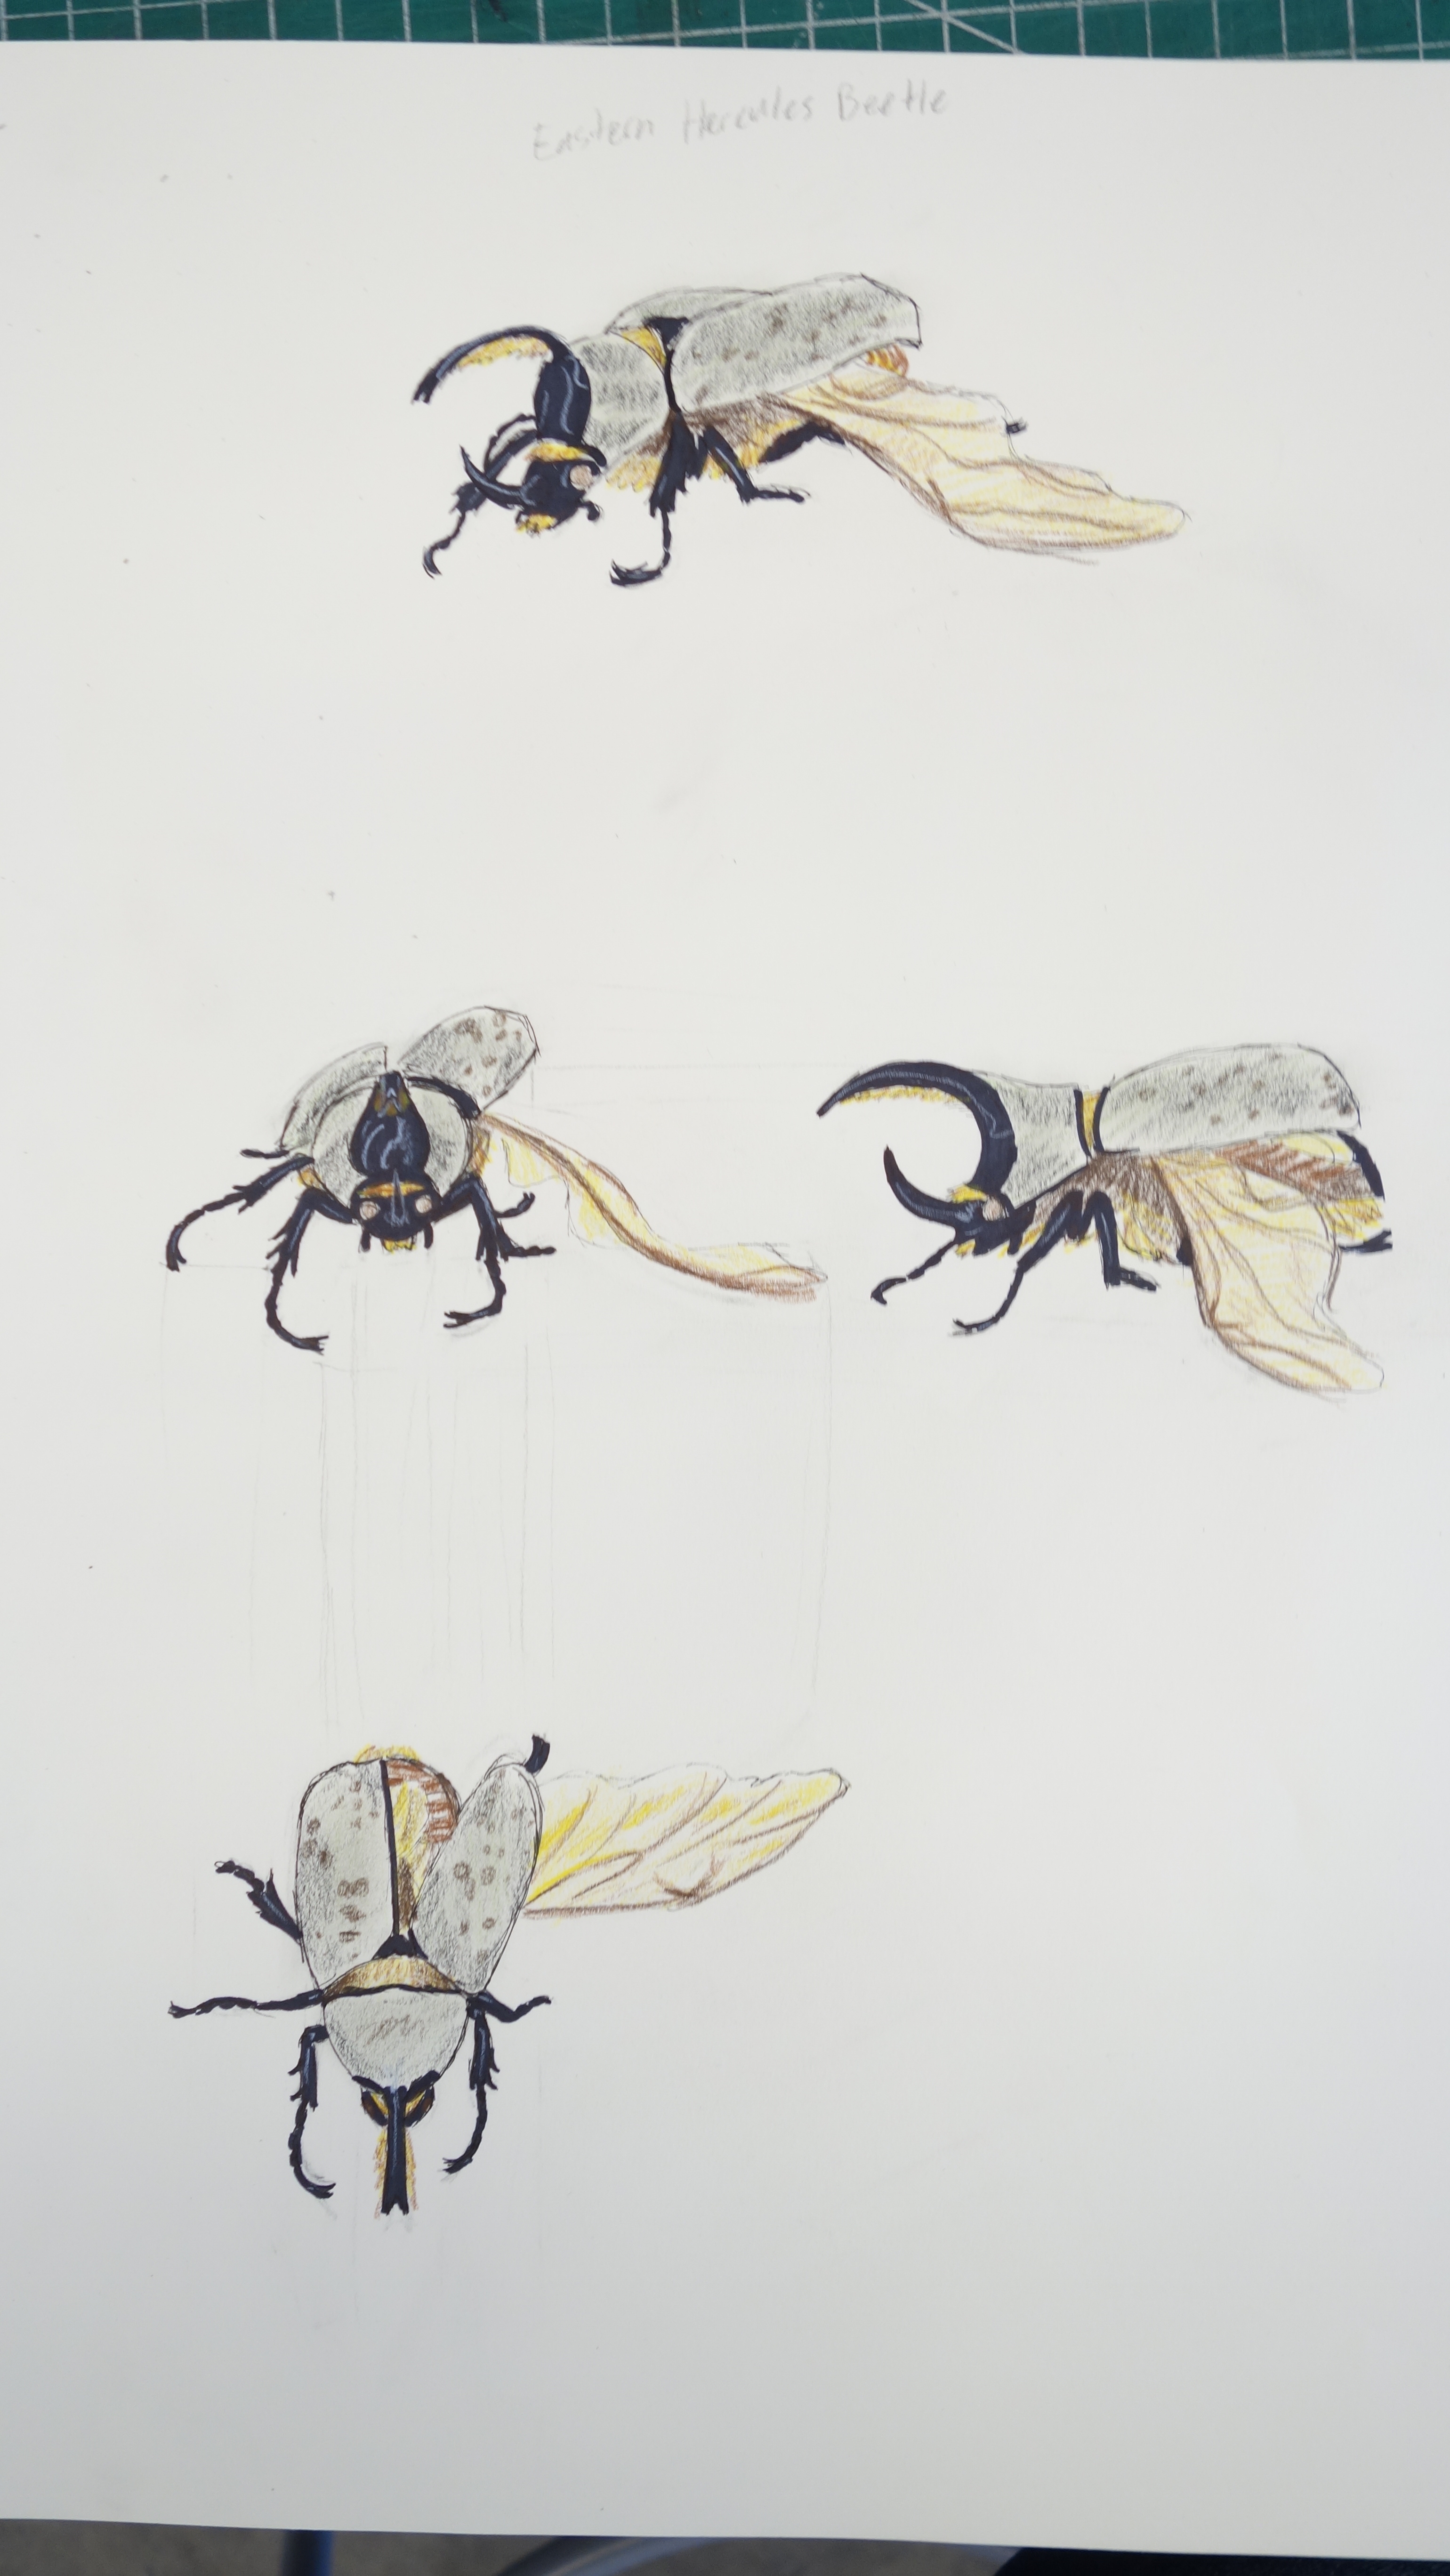 Eastern Hercules Beetle